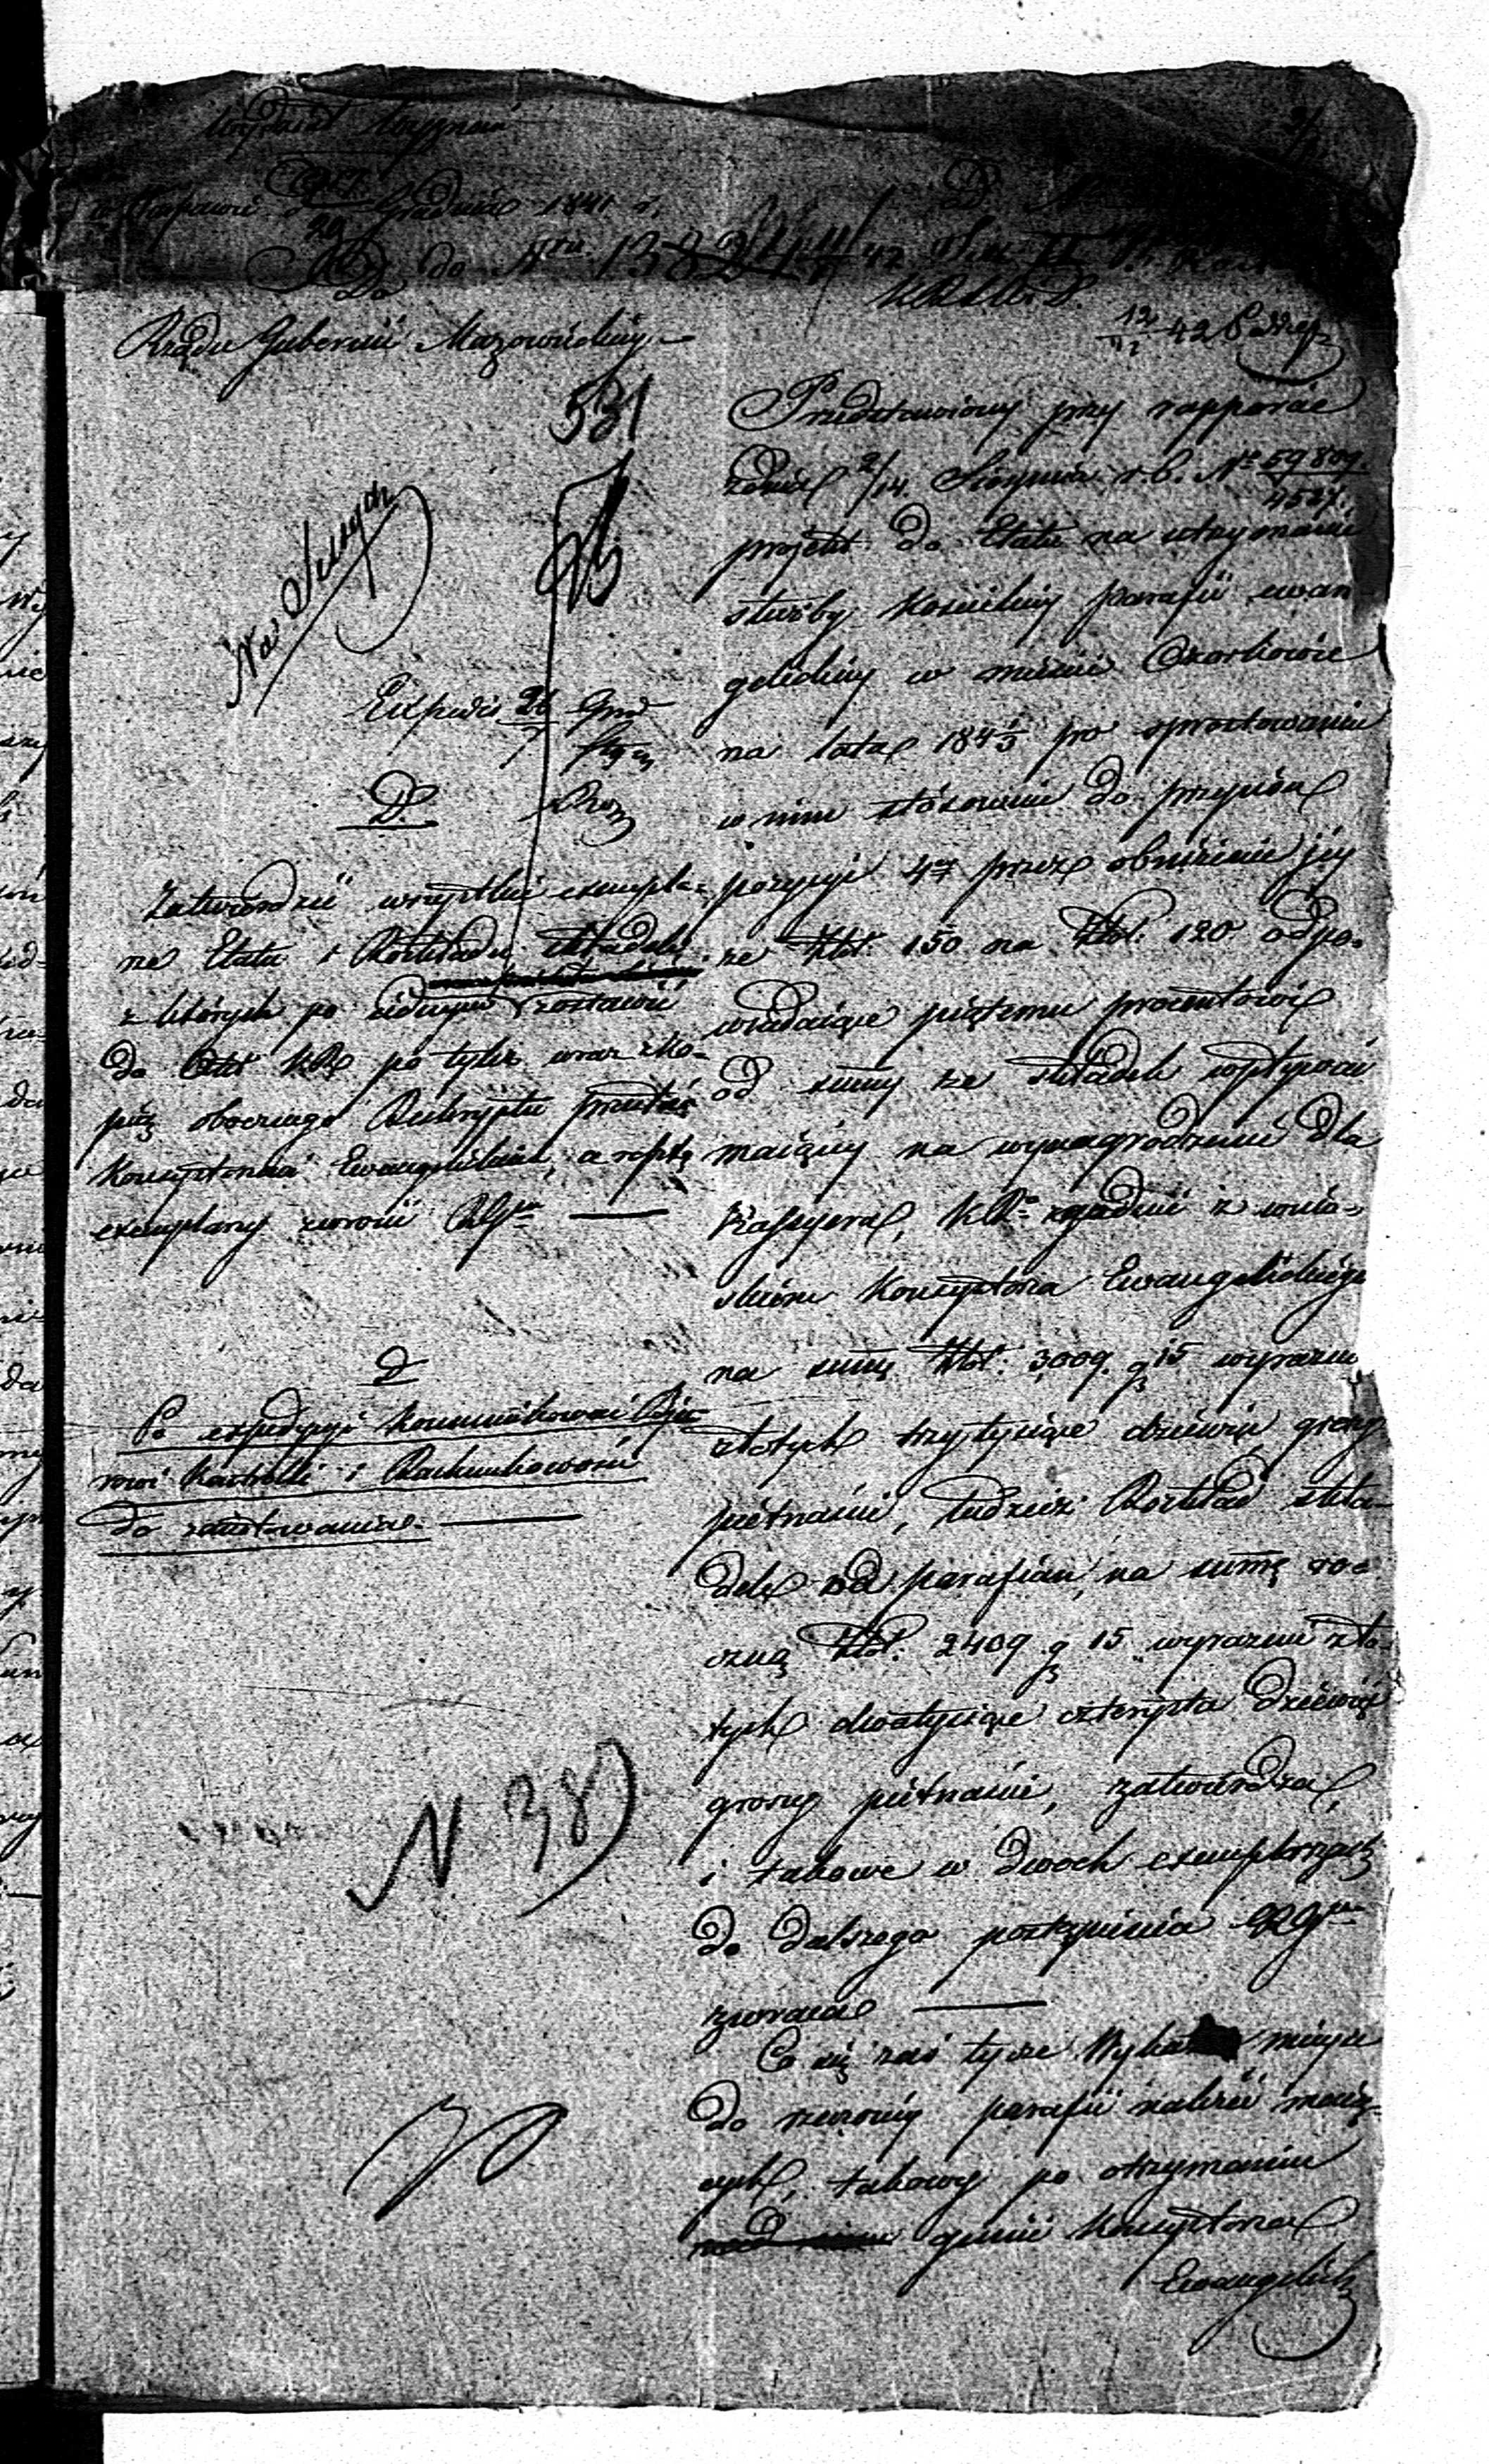 Wydział Wyznań
Grudnia 1841 r.
do Nru 13824
Do
Rządu Gubernii Mazowieckiej
12/ 42
531
Na Sessyą
D.
Zatwierdzić wszystkie exempla-
rze Etatu i Rozkładu składek
z których po jednym zostawić
do Akt KR po tyleż wraz z ko-
pią obecnego Reskryptu przesłać
Konsystorzowi Ewangelickiemu, a resztę
exemplarzy zwrócić
D
Po expedycyi kommunikować
Kontrolli i Rachunkowości
do zanotowania
N 38
Przedstawiony przy rapporcie
z dnia 2/14 Sierpnia r. b. No 59809/4527
projekt do Etatu na utrzymanie
służby Kościelnej parafii ewan-
gelickiej w mieście Ozorkowie
na lata 184 1/3 po sprostowaniu
w nim stósownie do przepisów
pozycyi 4tej przez obniżenie jej
ze Złot. 150 na Złot. 120 odpo-
wiadające piątemu procentowi
od summy ze składek wpływać
mającej na wynagrodzenie dla
Kassyera, KR zgodnie z wnio-
skiem Konsystorza Ewangelickiego
na summę Złot. 3,009 g 15 wyraźnie
złotych trzytysiące dziewięć groszy
piętnaście, tudzież Rozkład skła-
dek od parafian, na summę ro-
czną Złot. 2409 g 15 wyraźnie zło-
tych dwatysiące czterysta dziewięć
groszy piętnaście, zatwierdza,
i takowe w dwóch exemplarzach
do dalszego postąpienia
zwraca
Co się zaś tycze Wykazu miejsc
do rzeczonej parafii należeć mają-
cych, takowy po otrzymaniu
Konsystorza
Ewangelick